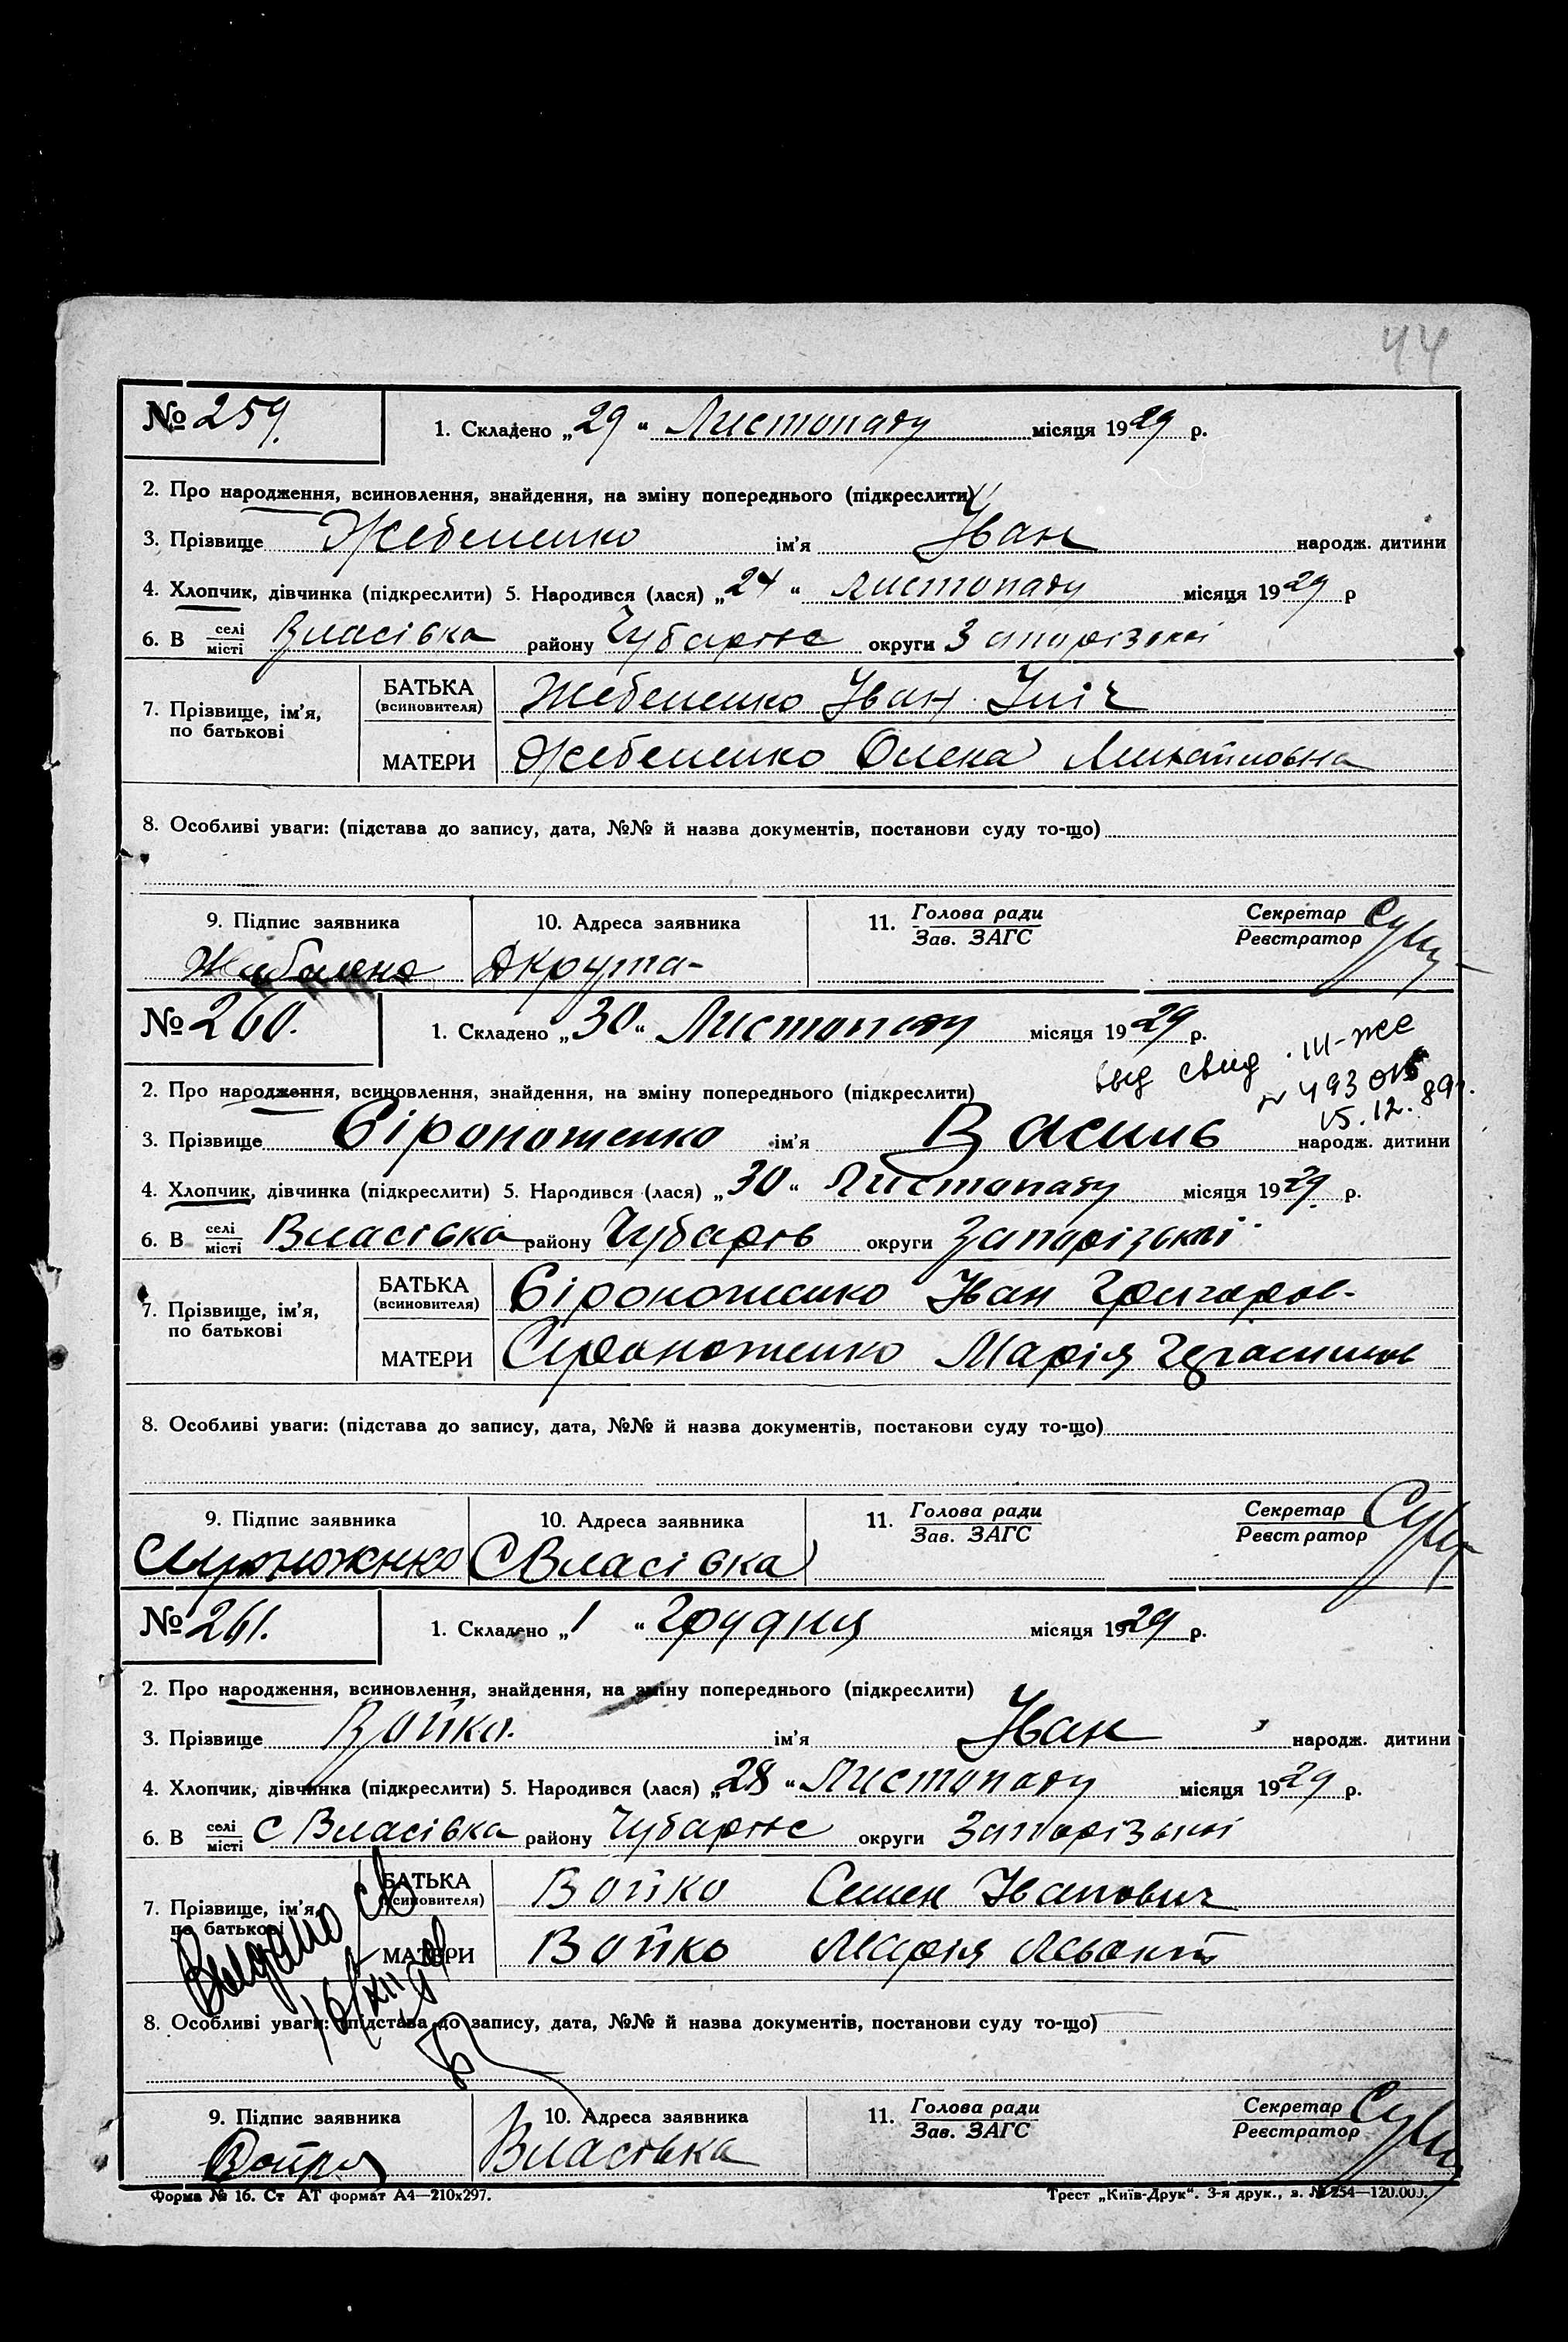 44
№ 259.
1. Складено „29“ Листопаду місяця 1929 р.
2. Про народження, всиновлення, знайдення, на зміну попереднього (підкреслити)
3. Прізвище Жебеленко ім'я Іван народж. дитини
4. Хлопчик, дівчинка (підкреслити) 5. Народився (лася) „24“ листопаду місяця 1929 р
6. В селі місті Власівка району Чубарівс округи Запорізької
7. Прізвище, ім'я, по батькові
БАТЬКА (всиновителя) Жебеленко Іван Іліч
МАТЕРИ Жебеленко Олена Михайловна
8. Особливі уваги: (підстава до запису, дата, №№ й назва документів, постанови суду то-що)
9. Підпис заявника 10. Адреса заявника 11. Голова ради Зав. ЗАГС Секретар Реєстратор
№ 260.
1. Складено „30“ Листопаду місяця 1929 р.
выд свид. III-же
№ 493016
15.12.89г.
2. Про народження, всиновлення, знайдення, на зміну попереднього (підкреслити)
3. Прізвище Сіроноженко ім'я Василь народж. дитини
4. Хлопчик, дівчинка (підкреслити) 5. Народився (лася) „30“ Листопаду місяця 1929 р.
6. В селі місті Власівка району Чубарів округи Запорізької
7. Прізвище, ім'я, по батькові
БАТЬКА (всиновителя) Сіроноженко Іван Григоров-
МАТЕРИ Сироноженко Марія
8. Особливі уваги: (підстава до запису, дата, №№ й назва документів, постанови суду то-що)
9. Підпис заявника 10. Адреса заявника 11. Голова ради Зав. ЗАГС Секретар Реєстратор
С Власівка
№ 261.
1. Складено „1“ Грудня місяця 1929 р.
2. Про народження, всиновлення, знайдення, на зміну попереднього (підкреслити)
3. Прізвище Бойко. ім'я Іван народж. дитини
4. Хлопчик, дівчинка (підкреслити) 5. Народився (лася) „28“ Листопаду місяця 1929 р.
6. В селі місті С Власівка району Чубарівс округи Запорізької
7. Прізвище, ім'я, по батькові
БАТЬКА (всиновителя) Бойко Семен Іванович
МАТЕРИ Бойко Марія
Выдано св
8. Особливі уваги: (підстава до запису, дата, №№ й назва документів, постанови суду то-що)
9. Підпис заявника 10. Адреса заявника 11. Голова ради Зав. ЗАГС Секретар Реєстратор
Власівка
Форма № 16. Ст АТ формат А4—210х297.
Трест „Київ-Друк“. 3-я друк., з. № 254—120.000.